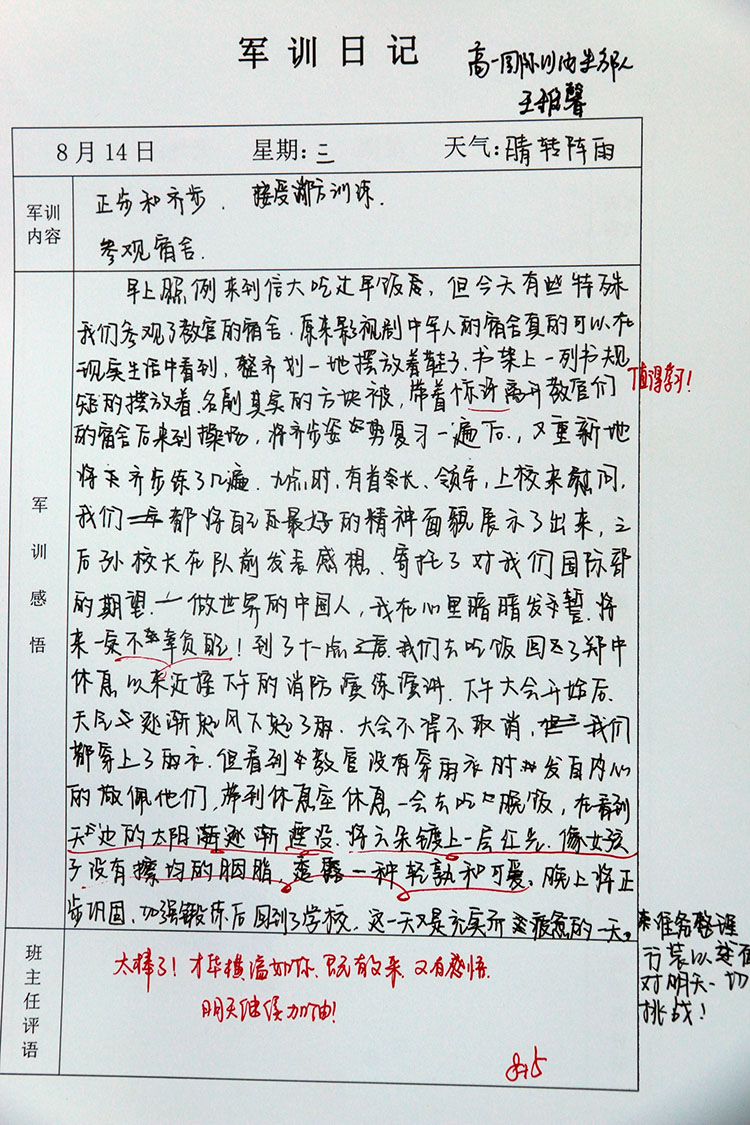 军训日记
高一国际
王
8月14日 星期:三 天气:晴转阵雨
军训内容
正步和齐步. 接受消防训练.
参观宿舍.
军训感悟
早上照例来到信大吃过早饭后,但今天有些特殊
我们参观了教官的宿舍.原来影视剧中军人的宿舍真的可以在
现实生活中看到,整齐划一地摆放着鞋子.书架上一列书规
矩的摆放着.名副其实的方块被,带着惊讶离开教官们
值得学习!
的宿舍后来到操场,将齐步姿势复习一遍后.,又重新地
将齐步练了几遍.九点时,有首长、领导,上校来慰问,
我们都将自己最好的精神面貌展示了出来,之
后孙校长在队前发表感想.寄托了对我们国际部
的期望.一做世界的中国人,我在心里暗暗发誓.将
来一定不辜负自己!到了十一点之后.我们去吃饭回了郑中
休息以来迎接下午的消防演练演讲.下午大会开始后.
天气逐渐起风下起了雨.大会不得不取消,我们
都穿上了雨衣.但看到教官没有穿雨衣时发自内心
的敬佩他们,带到休息室休息一会去吃晚饭,在看到
天边的太阳逐渐埋没.将云朵镀上一层红光.像女孩
子没有擦均的胭脂,透露一种轻熟和可爱.晚上将正
步巩固.加强锻练后回到了学校.这一天又是充实而疲惫的一天。
来准备整理
行装以来面
对明天一切
挑战!
班主任评语
太棒了!才华横溢如你.既有文采.又有感悟.
明天继续加油!
8.15